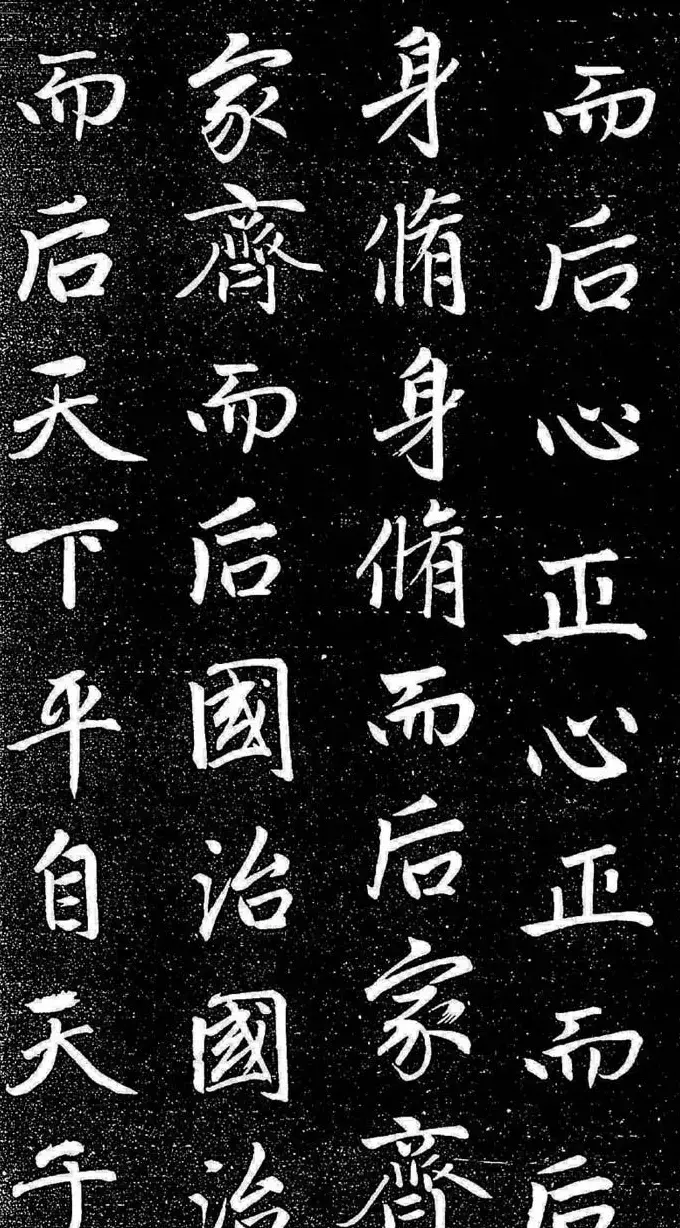 而后心正心正而后
身脩身脩而后家齊
家齊而后國治國治
而后天下平自天子